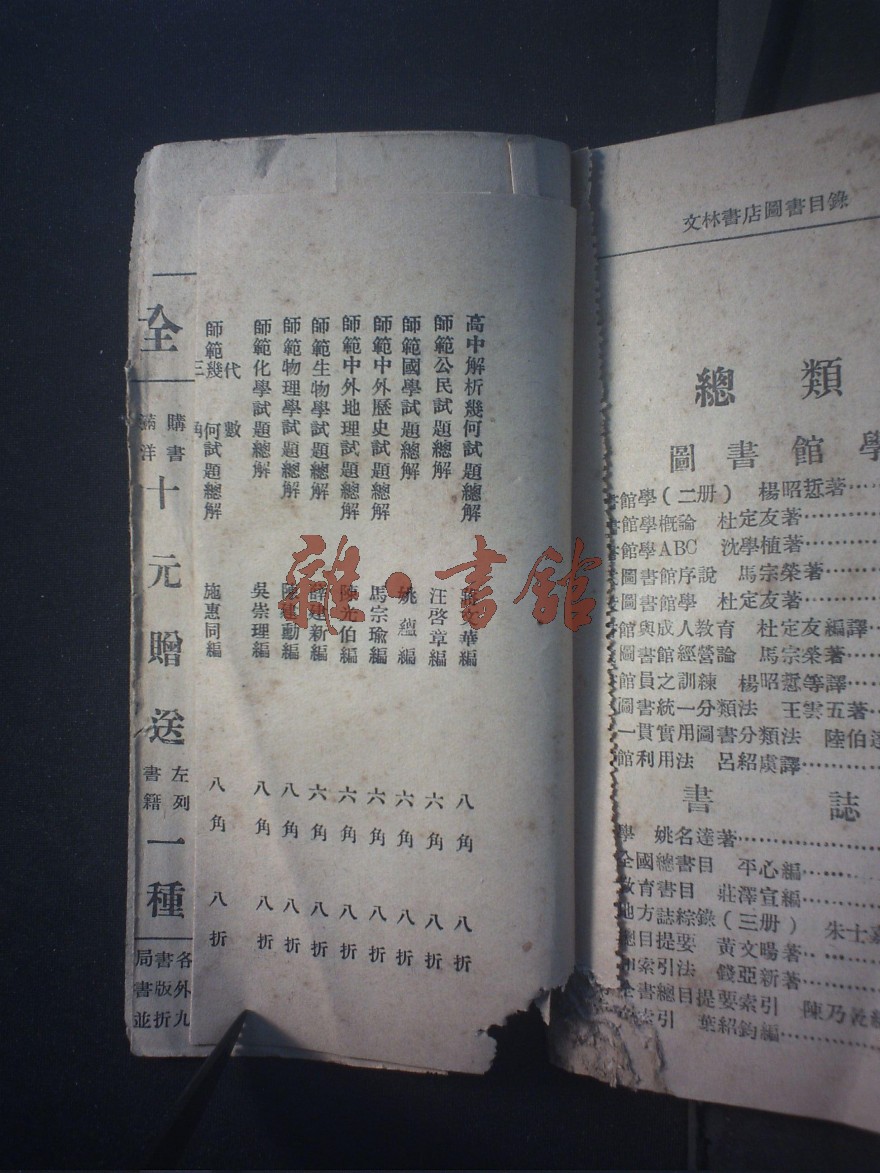 文林書店圖書目錄
總類
圖書館學
書館學(二册) 楊昭悊著
書館學概論 杜定友著
書館學ABC 沈學植著
圖書館序說 馬宗榮著
圖書館學 杜定友著
館與成人教育 杜定友編譯
圖書館經營論 馬宗榮著
館員之訓練 楊昭悊等譯
圖書統一分類法 王雲五著
一貫實用圖書分類法 陸伯
館利用法 呂紹虞譯
書誌
學 姚名達著
全國總書目 平心編
教育書目 莊澤宣編
地方誌綜錄(三册) 朱士嘉
總目提要 黃文暘著
索引法 錢亞新著
全書總目提要索引 陳乃乾
索引 葉紹鈞編
高中解析幾何試題總解 蔣文華編 八角 八折
師範公民試題總解 汪啓章編 六角 八折
師範國學試題總解 姚蘊編 六角 八折
師範中外歷史試題總解 馬宗瑜編 六角 八折
師範中外地理試題總解 陳光伯編 六角 八折
師範生物學試題總解 薛建新編 六角 八折
師範物理學試題總解 陳建勳編 八角 八折
師範化學試題總解 吳崇理編 八角 八折
師範代數幾何三角試題總解 施惠同編 八角 八折
全
購書滿洋十元贈送左列書籍一種
各外九
書版折
局書並
雜·書館